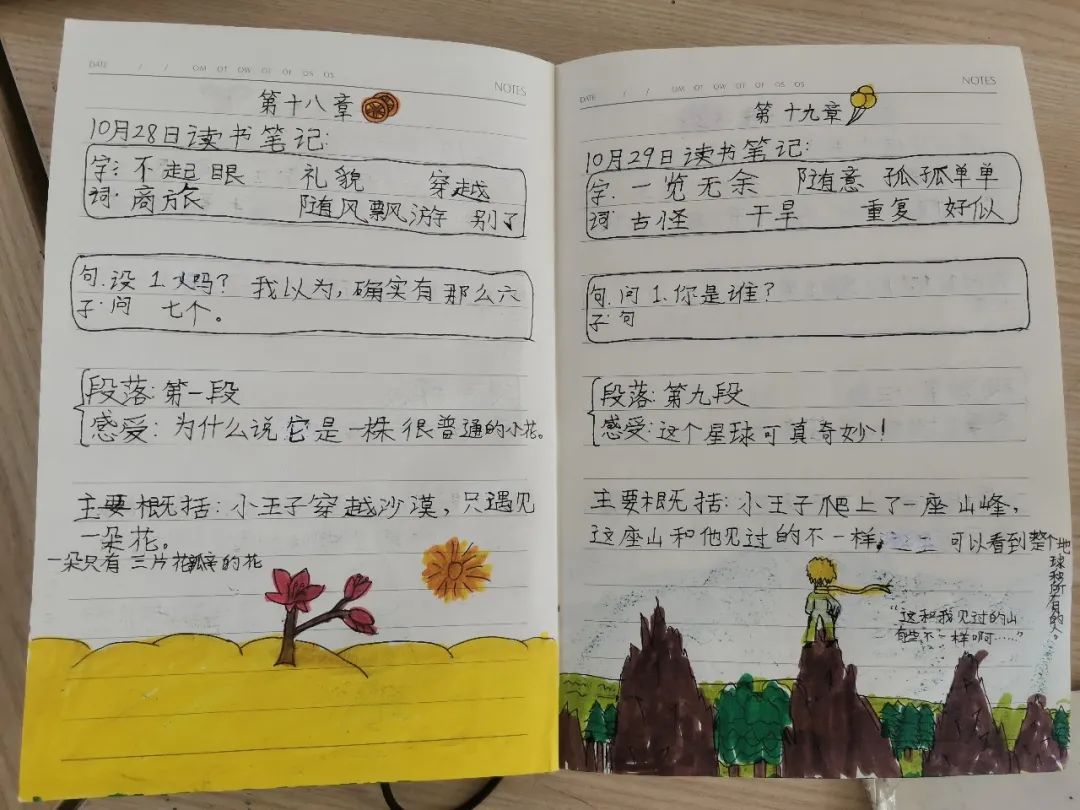 DATE / / OM OT OW OT OF OS OS
NOTES
第十八章
10月28日读书笔记:
字: 不起眼 礼貌 穿越
词: 商旅 随风飘游 别了
句. 设 1. 人吗? 我以为,确实有那么六
子: 问 七个。
段落: 第一段
感受: 为什么说它是一株很普通的小花。
主要概括: 小王子穿越沙漠, 只遇见
一朵花。
一朵只有三片花瓣的花
DATE / / OM OT OW OT OF OS OS
NOTES
第十九章
10月29日读书笔记:
字. 一览无余 随意 孤孤单单
词 古怪 干旱 重复 好似
句. 问 1. 你是谁?
子: 句
段落: 第九段
感受: 这个星球可真奇妙!
主要概括: 小王子爬上了一座山峰,
这座山和他见过的不一样, 可以看到整个地
球和所有的人。
“这和我见过的山
不一样啊……”